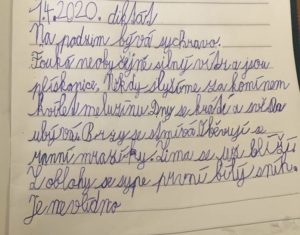 1.4.2020. diktát
Na podzim bývá sychravo.
Fouká neobyčejně silný vítr a jsou
plískanice. Někdy slyšíme za komínem
kvílet meluzínu. Dny se krátí a
ubývá. Brzy se stmívá. Objevují se
ranní mrazíky. Zima se už blíží.
Z oblohy se sype první bílý sníh.
Je nevlídno